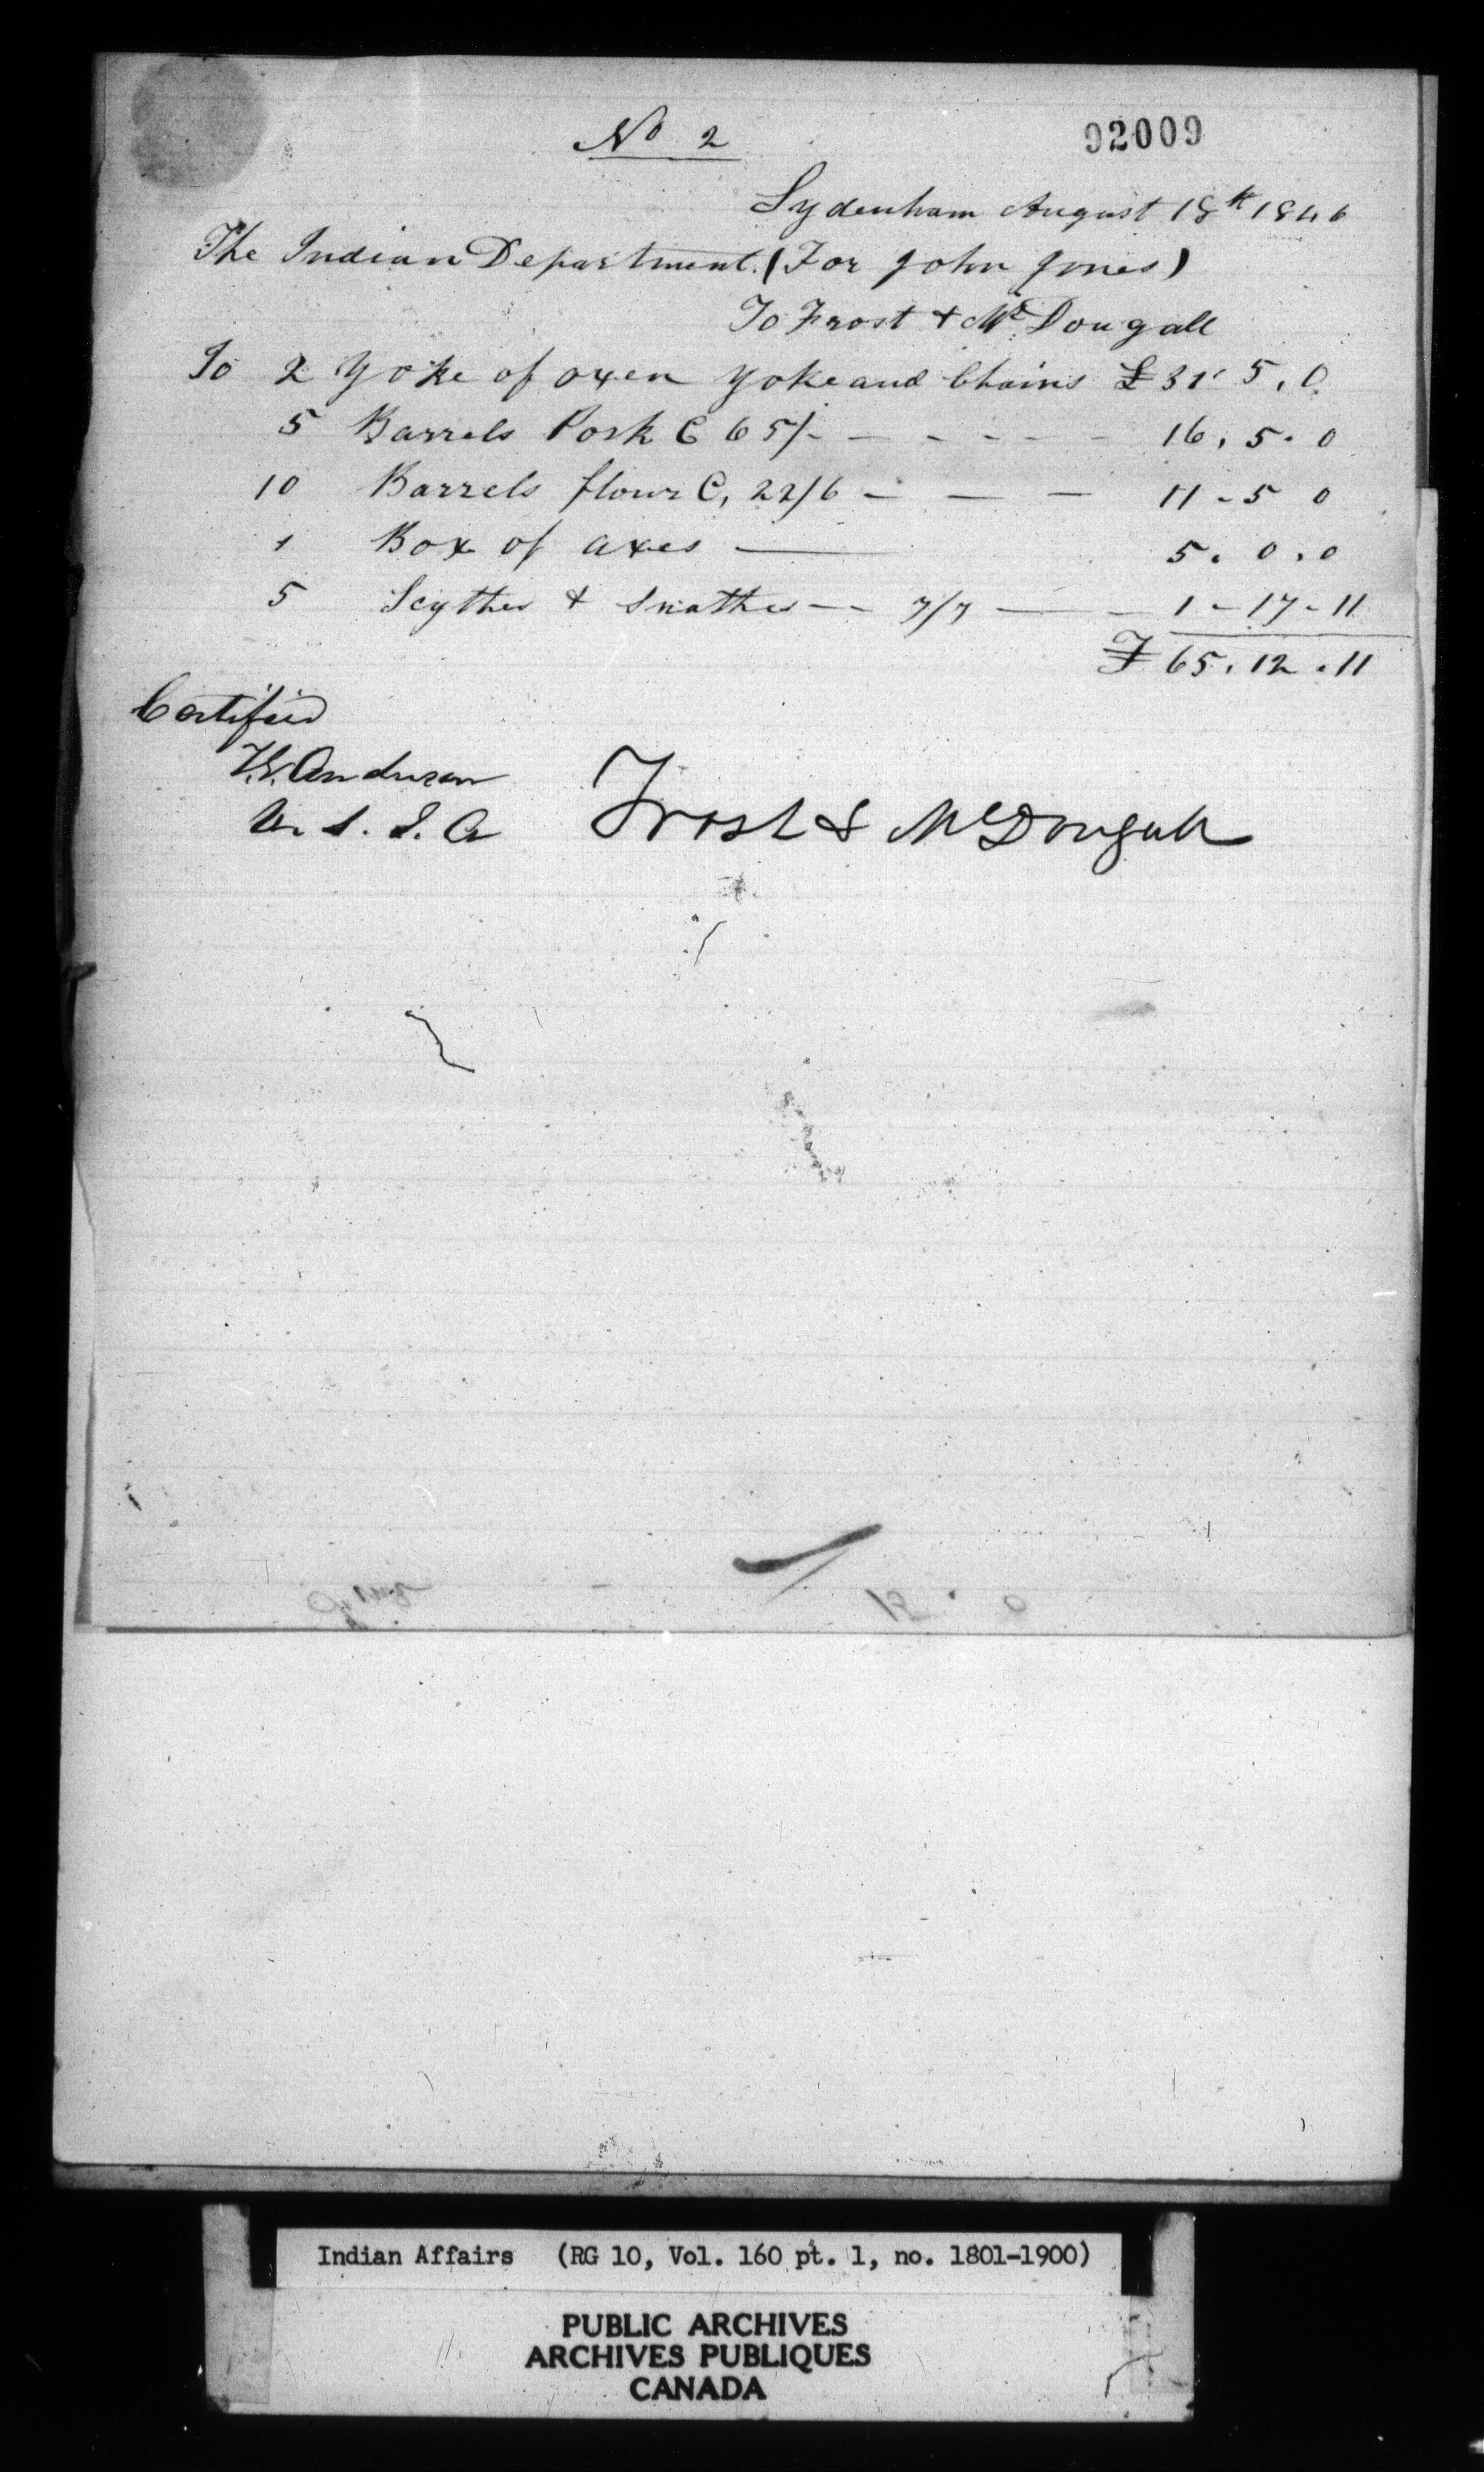 No 2
92009
Sydenham August 18th 1846
The Indian Department. (For John Jones)
To Frost + McDougall
To 2 Yoke of oxen Yoke and Chains £ 31 5. 0.
5 Barrels Pork @ 65/- - - - - - 16. 5. 0
10 Barrels flour @, 22/6 - - - 11 - 5 0
1 Box of axes — 5. 0. 0
5 Scythes + Snathes - - 7/7 — - 1 - 17 - 11
£ 65. 12. 11
Certified
T.G. Anderson
V. S. I. A
Frost & McDougall
Indian Affairs (RG 10, Vol. 160 pt. 1, no. 1801-1900)
PUBLIC ARCHIVES
ARCHIVES PUBLIQUES
CANADA